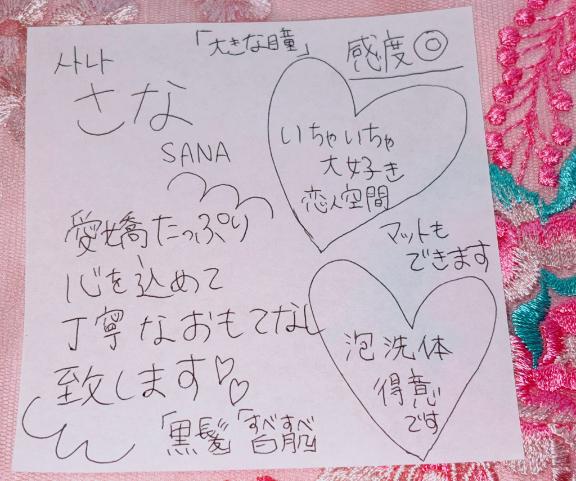 「大きな瞳」
感度◎
사나
さな
SANA
いちゃいちゃ
大好き
恋人空間
愛嬌たっぷり
心を込めて
丁寧なおもてなし
致します♡♡
マットも
できます
泡洗体
得意
です
「黒髪」「すべすべ
白肌」